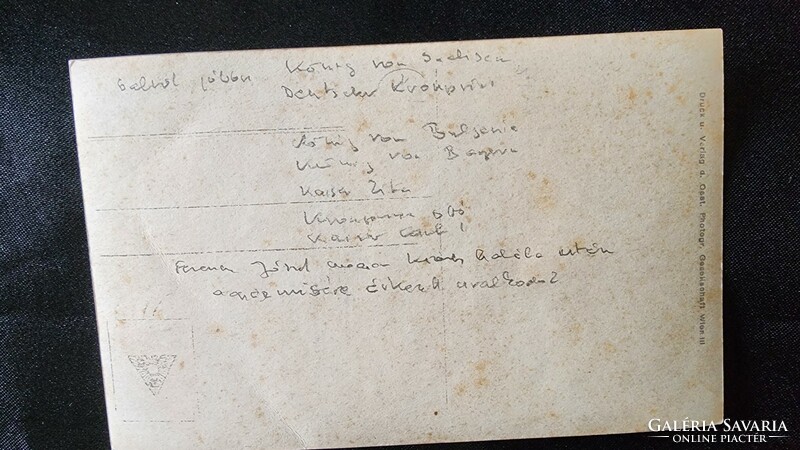 balról jobbra König von Sachsen
Deutscher Kronprinz
König von Bulgarien
König von Bayern
Kaiser Zita
Kronprinz Ottó
Kaiser Karl I
Ferenc József magyar király halála után
a gyászmisére érkező uralkodó
Druck u. Verlag d. Oest. Photogr. Gesellschaft, Wien III
GALÉRIA SAVARIA
ONLINE PIACTÉR